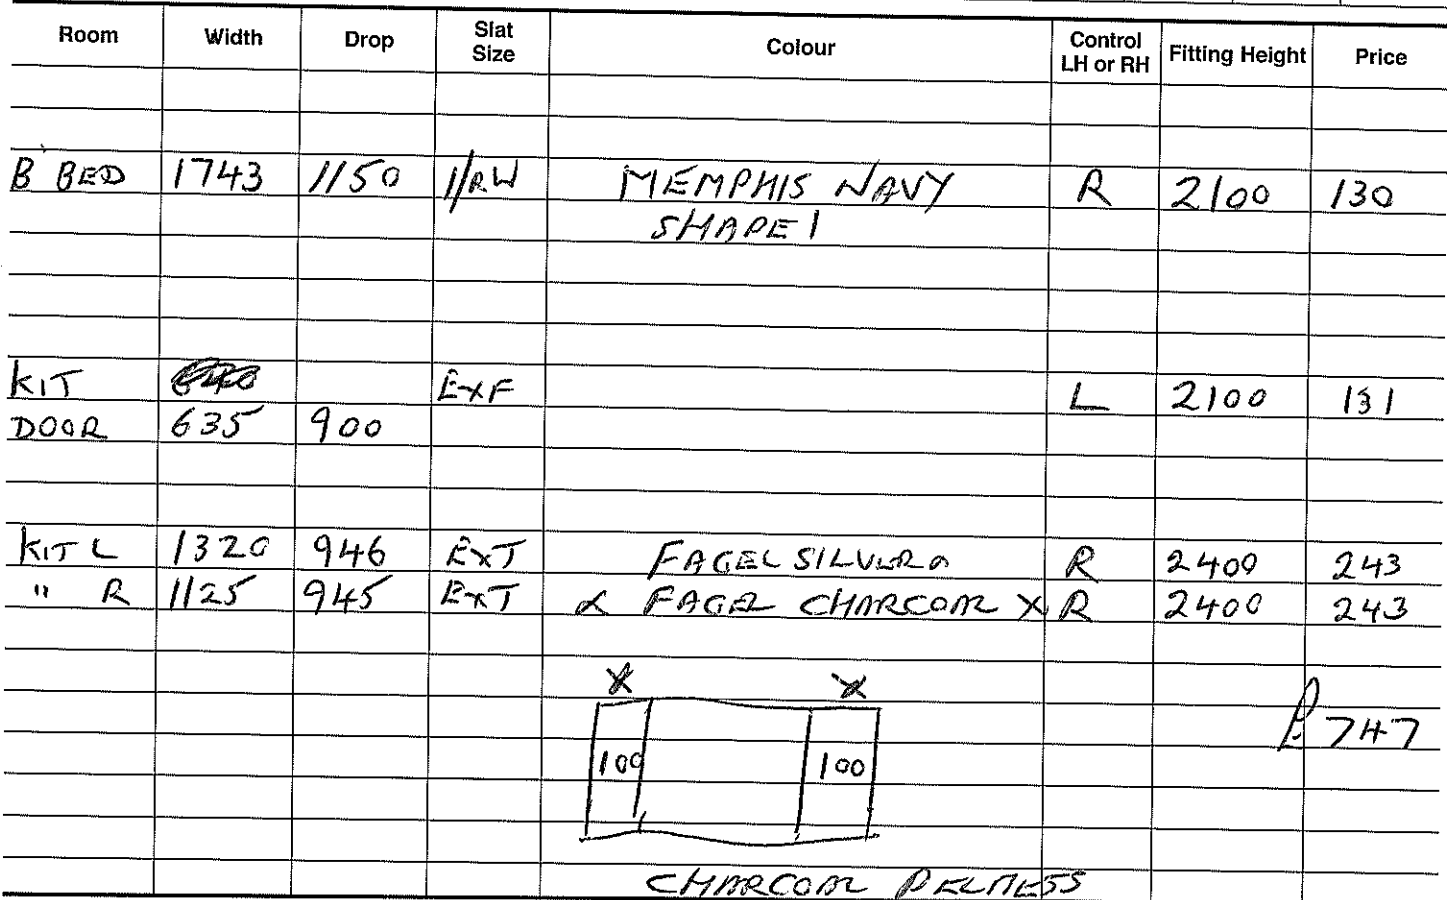 Room Width Drop Slat Size Colour Control LH or RH Fitting Height Price
B BED 1743 1150 1/RW MEMPHIS NAVY R 2100 130
SHAPE 1
KIT EXF L 2100 131
DOOR 635 900
KIT L 1320 946 EXT FAGEL SILVER R 2400 243
" R 1125 945 EXT & FAGEL CHARCOAL X R 2400 243
X X
£ 747
100 100
CHARCOAL PELMESS